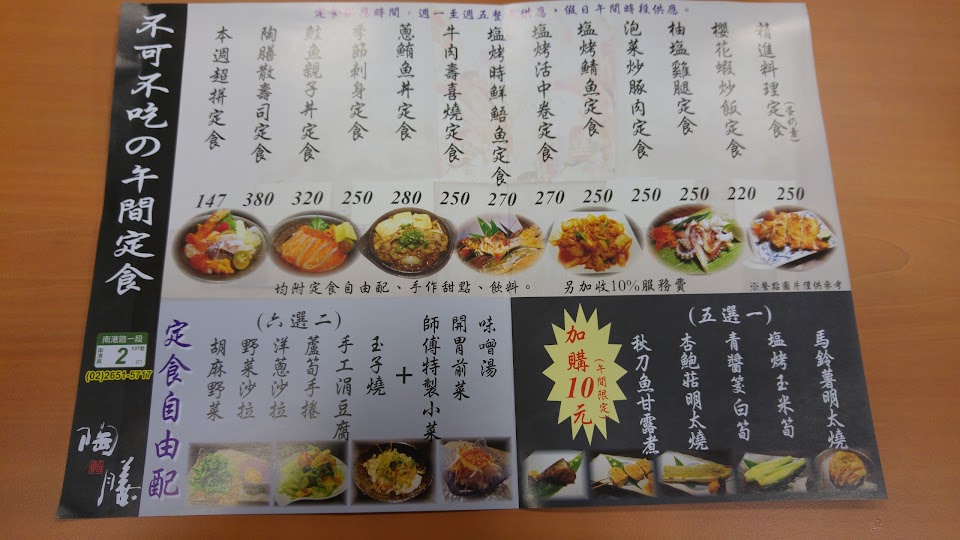 定食供應時間：週一至週五整 供應，假日午間時段供應。
不可不吃の午間定食
精進料理定食(蛋奶素)
櫻花蝦炒飯定食
柚塩雞腿定食
泡菜炒豚肉定食
塩烤鯖魚定食
塩烤活中卷定食
塩烤時鮮鮭魚定食
牛肉壽喜燒定食
蔥鮪魚丼定食
季節刺身定食
鮭魚親子丼定食
陶膳散壽司定食
本週超拼定食
147 380 320 250 280 250 270 270 250 250 250 220 250
均附定食自由配、手作甜點、飲料。 另加收10%服務費
※餐點圖片僅供參考
定食自由配
(六選二)
玉子燒
手工涓豆腐
蘆筍手捲
洋蔥沙拉
野菜沙拉
胡麻野菜
+
味噌湯
開胃前菜
師傅特製小菜
加購10元
(午間限定)
(五選一)
馬鈴薯明太燒
塩烤玉米筍
青醬筊白筍
杏鮑菇明太燒
秋刀魚甘露煮
南港路一段
2
(02)2651-5717
陶膳